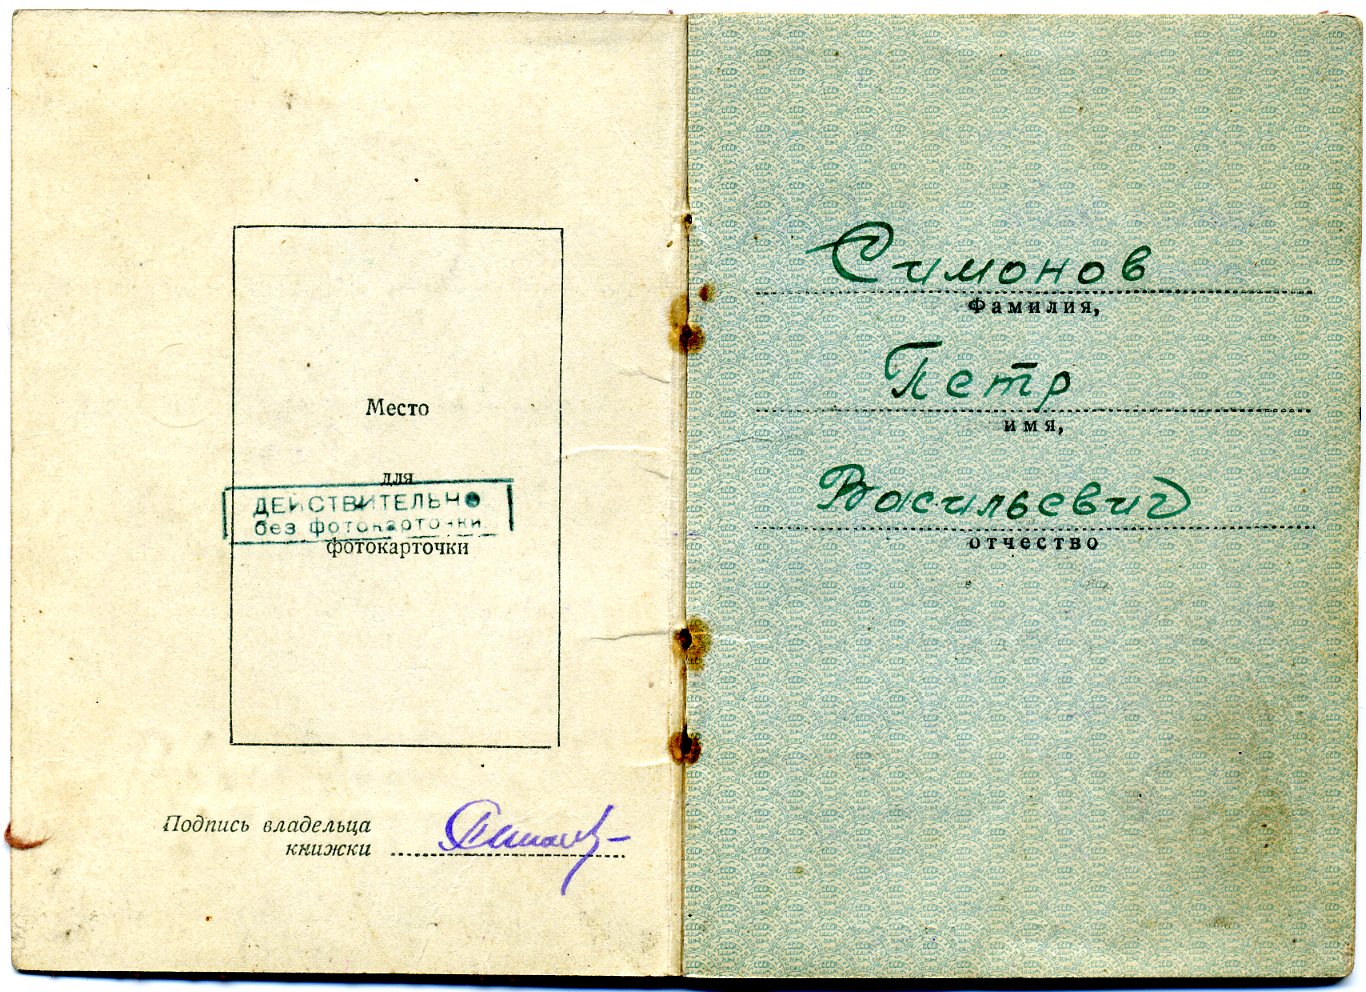 Место
для
ДЕЙСТВИТЕЛЬНО
без фотокарточки
фотокарточки
Подпись владельца
книжки
Симонов
Фамилия,
Петр
имя,
Васильевич
отчество